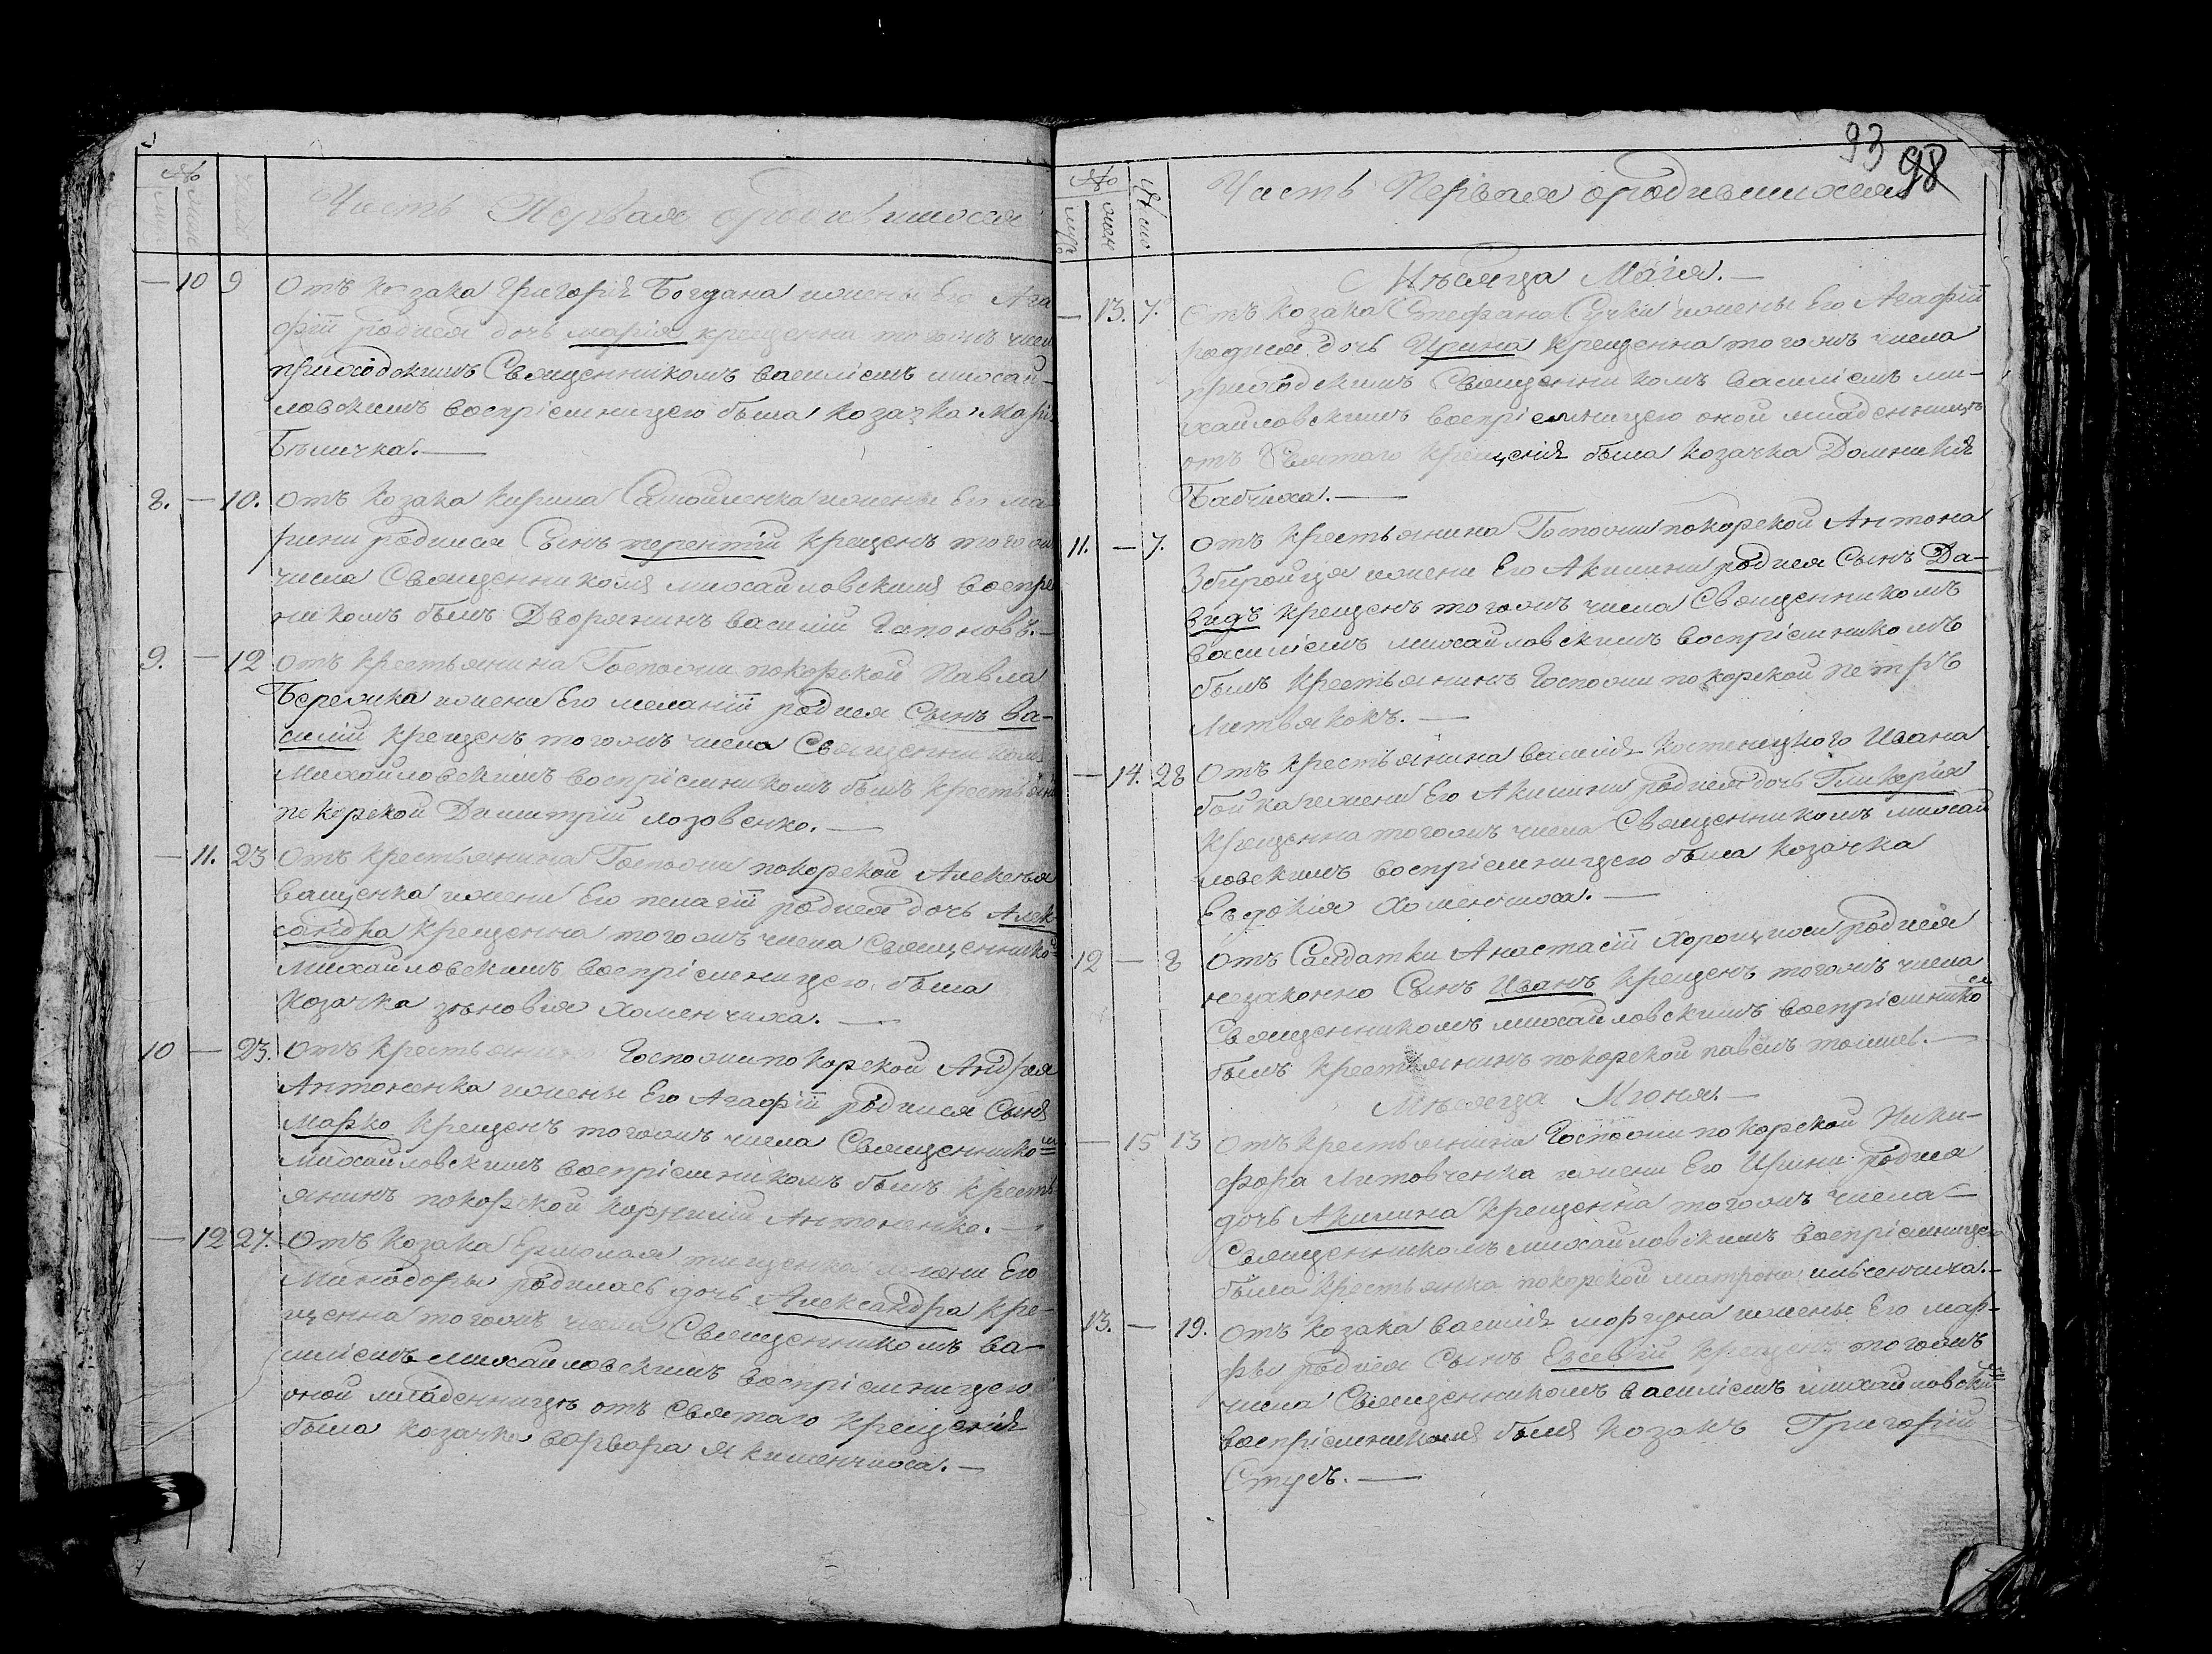 Часть Первая ородившихся
— 10 9 Отъ козака Григорія Богдана ижены Его Ага
фіи родися дочь Марія крещенна тогожъ числ
приходскимъ Священникомъ василіемъ михай-
ловскимъ воспріемницею была козачка Марі
Бѣличка.—
8. — 10. Отъ козака кирила Самойленка ижены Его ма
рини родился Сынъ терентій крещенъ того ж
числа Священникомъ михайловскимъ воспре
никомъ былъ Дворянинъ василій Гапоновъ.—
9. — 12 Отъ крестьянина Госпожи покорской Павла
Бережка ижени Его меланіи родися Сынъ ва-
силій крещенъ тогожъ числа Священником
Михайловскимъ воспріемникомъ былъ крестьян
покорской Димитрій лозовенко.—
— 11. 23 Отъ крестьянина Госпожи покорской Алексѣя
ващенка ижени Его пелагіи родися дочь Алек-
сандра крещенна тогожъ числа Священнико
Михайловскимъ воспріемницею была
козачка зѣновія хоменчиха.—
10 — 23. Отъ крестьянина Госпожи покорской Андрея
Антоненка ижены Его Агафіи родился Сынъ
Марко крещенъ тогожъ числа Священникомъ
михайловскимъ воспріемникомъ былъ крестъ
янинъ покорской корнилій Антоненко.—
— 12 27. Отъ козака Ермолая тищенка ижени Его
Минодоры родилась дочь Александра кре-
щенна тогожъ числа Священникомъ ва-
силіемъ михайловскимъ воспріемницею
оной младенницѣ отъ Святаго крещенія
была козачка варвара якименчиха.—
93 98
Число
Часть Первая ородившихся
Мѣсяца Маія.—
— 13. 7. Отъ козака Стефана Сучки ижены Его Агафіи
родися дочь Ирина крещенна тогожъ числа
приходскимъ Священникомъ василіемъ ми-
хайловскимъ воспріемницею оной младенницѣ
отъ Святаго крещенія была козачка Домникія
Бабчиха.—
11. — 7. Отъ крестьянина Госпожи покорской Антона
Збиройця ижени Его Акилини родися Сынъ Да-
видъ крещенъ тогожъ числа Священникомъ
василіемъ михайловскимъ воспріемникомъ
былъ крестьянинъ Госпожи покорской петръ
Литвякокъ.—
— 14. 28 Отъ крестьянина василія костенецкого Ивана
бойка ижени Его Акилини родися дочь Гликерія
крещенна тогожъ числа Священникомъ михай
ловскимъ воспріемницею была козачка
Евдокія Хоменчиха.—
12 — 8 Отъ Салдатки Анастасіи Хорощихи родися
незаконно Сынъ Иванъ крещенъ тогожъ числа
Священникомъ михайловскимъ воспріемникомъ
былъ крестьянинъ покорской павелъ
Мѣсяца Июня.—
— 15 13 Отъ крестьянина Госпожи покорской Ники-
фора Литовченка ижени Его Ирини родися
дочь Акилина крещенна тогожъ числа
Священникомъ михайловскимъ воспріемницею
была крестьянка покорской матрона ильченчиха.—
13. — 19. Отъ козака василія моргуна ижены Его мар-
фы родися Сынъ Евсевій крещенъ тогожъ
числа Священникомъ василіемъ михайловскимъ
воспріемникомъ былъ козакъ Григорій
Стусъ.—